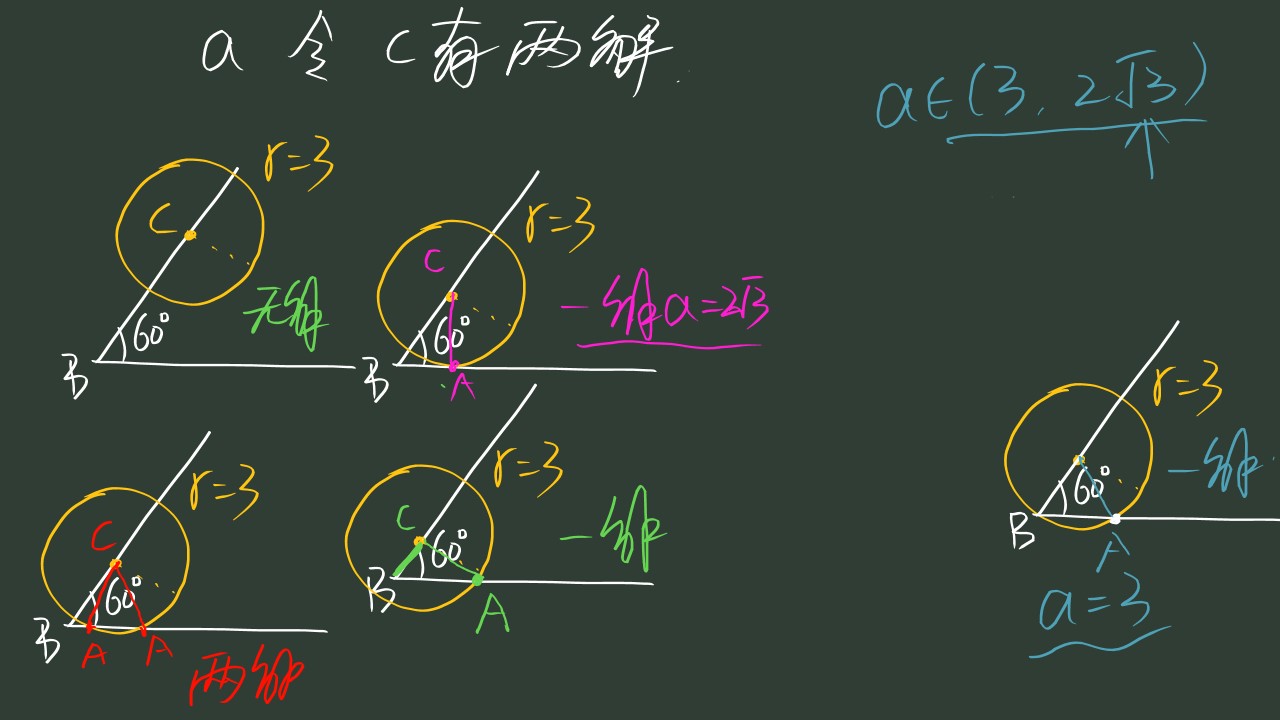 a 令 C有两解.
a∈(3, 2√3)
r=3
C
60°
B
无解
r=3
C
60°
B
A
一解a=2√3
r=3
C
60°
B
A
A
两解
r=3
C
60°
B
A
一解
r=3
60°
B
A
一解
a=3